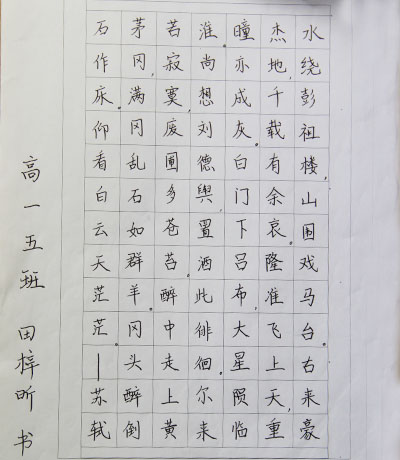 水绕彭祖楼,山围戏马台。古来豪
杰地,千载有余哀。隆准飞上天,重
瞳亦成灰。白门下吕布,大星陨临
淮。尚想刘德舆,置酒此徘徊。尔来
苦寂寞,废圃多苍苔。醉中走上黄
茅冈,满冈乱石如群羊。冈头醉倒
石作床。仰看白云天茫茫。—苏轼
高一五班 田梓昕 书